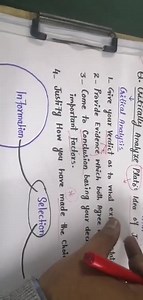 Critically Analyze Plato's Idea of
Critical Analysis
1. Give your Verdict as to what
2- Provide Evidence which both agree
3- Come to Conclusion basing your
important Factors.
4. Justify How you have made the
Information
Selection